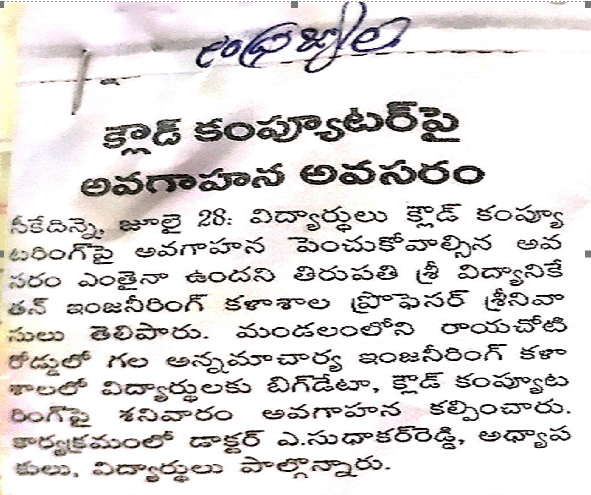 ఆంధ్రజ్యోతి
క్లౌడ్ కంప్యూటర్‌పై
అవగాహన అవసరం
సీకేదిన్నె, జూలై 28: విద్యార్థులు క్లౌడ్ కంప్యూ
టరింగ్‌పై అవగాహన పెంచుకోవాల్సిన అవ
సరం ఎంతైనా ఉందని తిరుపతి శ్రీ విద్యానికే
తన్ ఇంజనీరింగ్ కళాశాల ప్రొఫెసర్ శ్రీనివా
సులు తెలిపారు. మండలంలోని రాయచోటి
రోడ్డులో గల అన్నమాచార్య ఇంజనీరింగ్ కళా
శాలలో విద్యార్థులకు బిగ్‌డేటా, క్లౌడ్ కంప్యూట
రింగ్‌పై శనివారం అవగాహన కల్పించారు.
కార్యక్రమంలో డాక్టర్ ఎ.సుధాకర్‌రెడ్డి, అధ్యాప
కులు, విద్యార్థులు పాల్గొన్నారు.